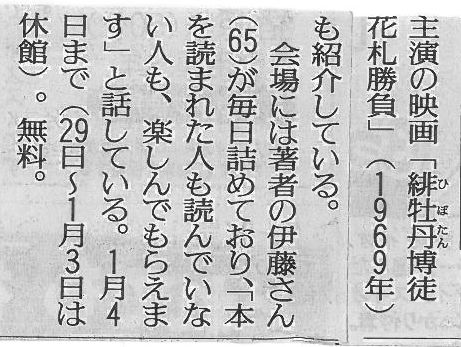 主演の映画「緋牡丹博徒
ひぼたん
花札勝負」（１９６９年）
も紹介している。
　会場には著者の伊藤さん
（65）が毎日詰めており、「本
を読まれた人も読んでいな
い人も、楽しんでもらえま
す」と話している。１月４
日まで（29日～１月３日は
休館）。無料。